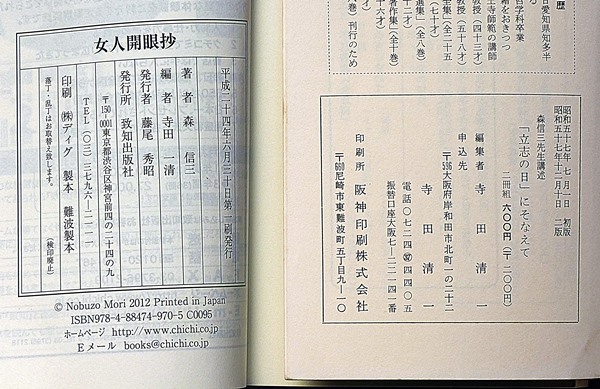 女人開眼抄
平成二十四年六月三十日第一刷発行
著者 森 信三
編者 寺田 一清
発行者 藤尾 秀昭
発行所 致知出版社
〒150-0001 東京都渋谷区神宮前四の二十四の九
TEL(〇三)三七九六-二一一一
印刷 ㈱ディグ 製本 難波製本
落丁・乱丁はお取替え致します。
(検印廃止)
© Nobuzo Mori 2012 Printed in Japan
ISBN978-4-88474-970-5 C0095
ホームページ http://www.chichi.co.jp
Eメール books@chichi.co.jp
歴
愛知県知多半
哲学科卒業
王寺師範の講師
教授(四十三才)
教授(五十八才)
選集」(全八巻)
著作集」(全十巻)
刊行のため
昭和五十七年 七月一日 初版
昭和五十七年十二月十日 二版
森信三先生講述
「立志の日」にそなえて
二冊組 六〇〇円(〒二〇〇円)
編集者 寺田清一
申込先
大阪府岸和田市北町一の二十二
寺田清一
振替口座大阪七-二二一四一番
印刷所 阪神印刷株式会社
尼崎市東難波町五丁目九-一〇